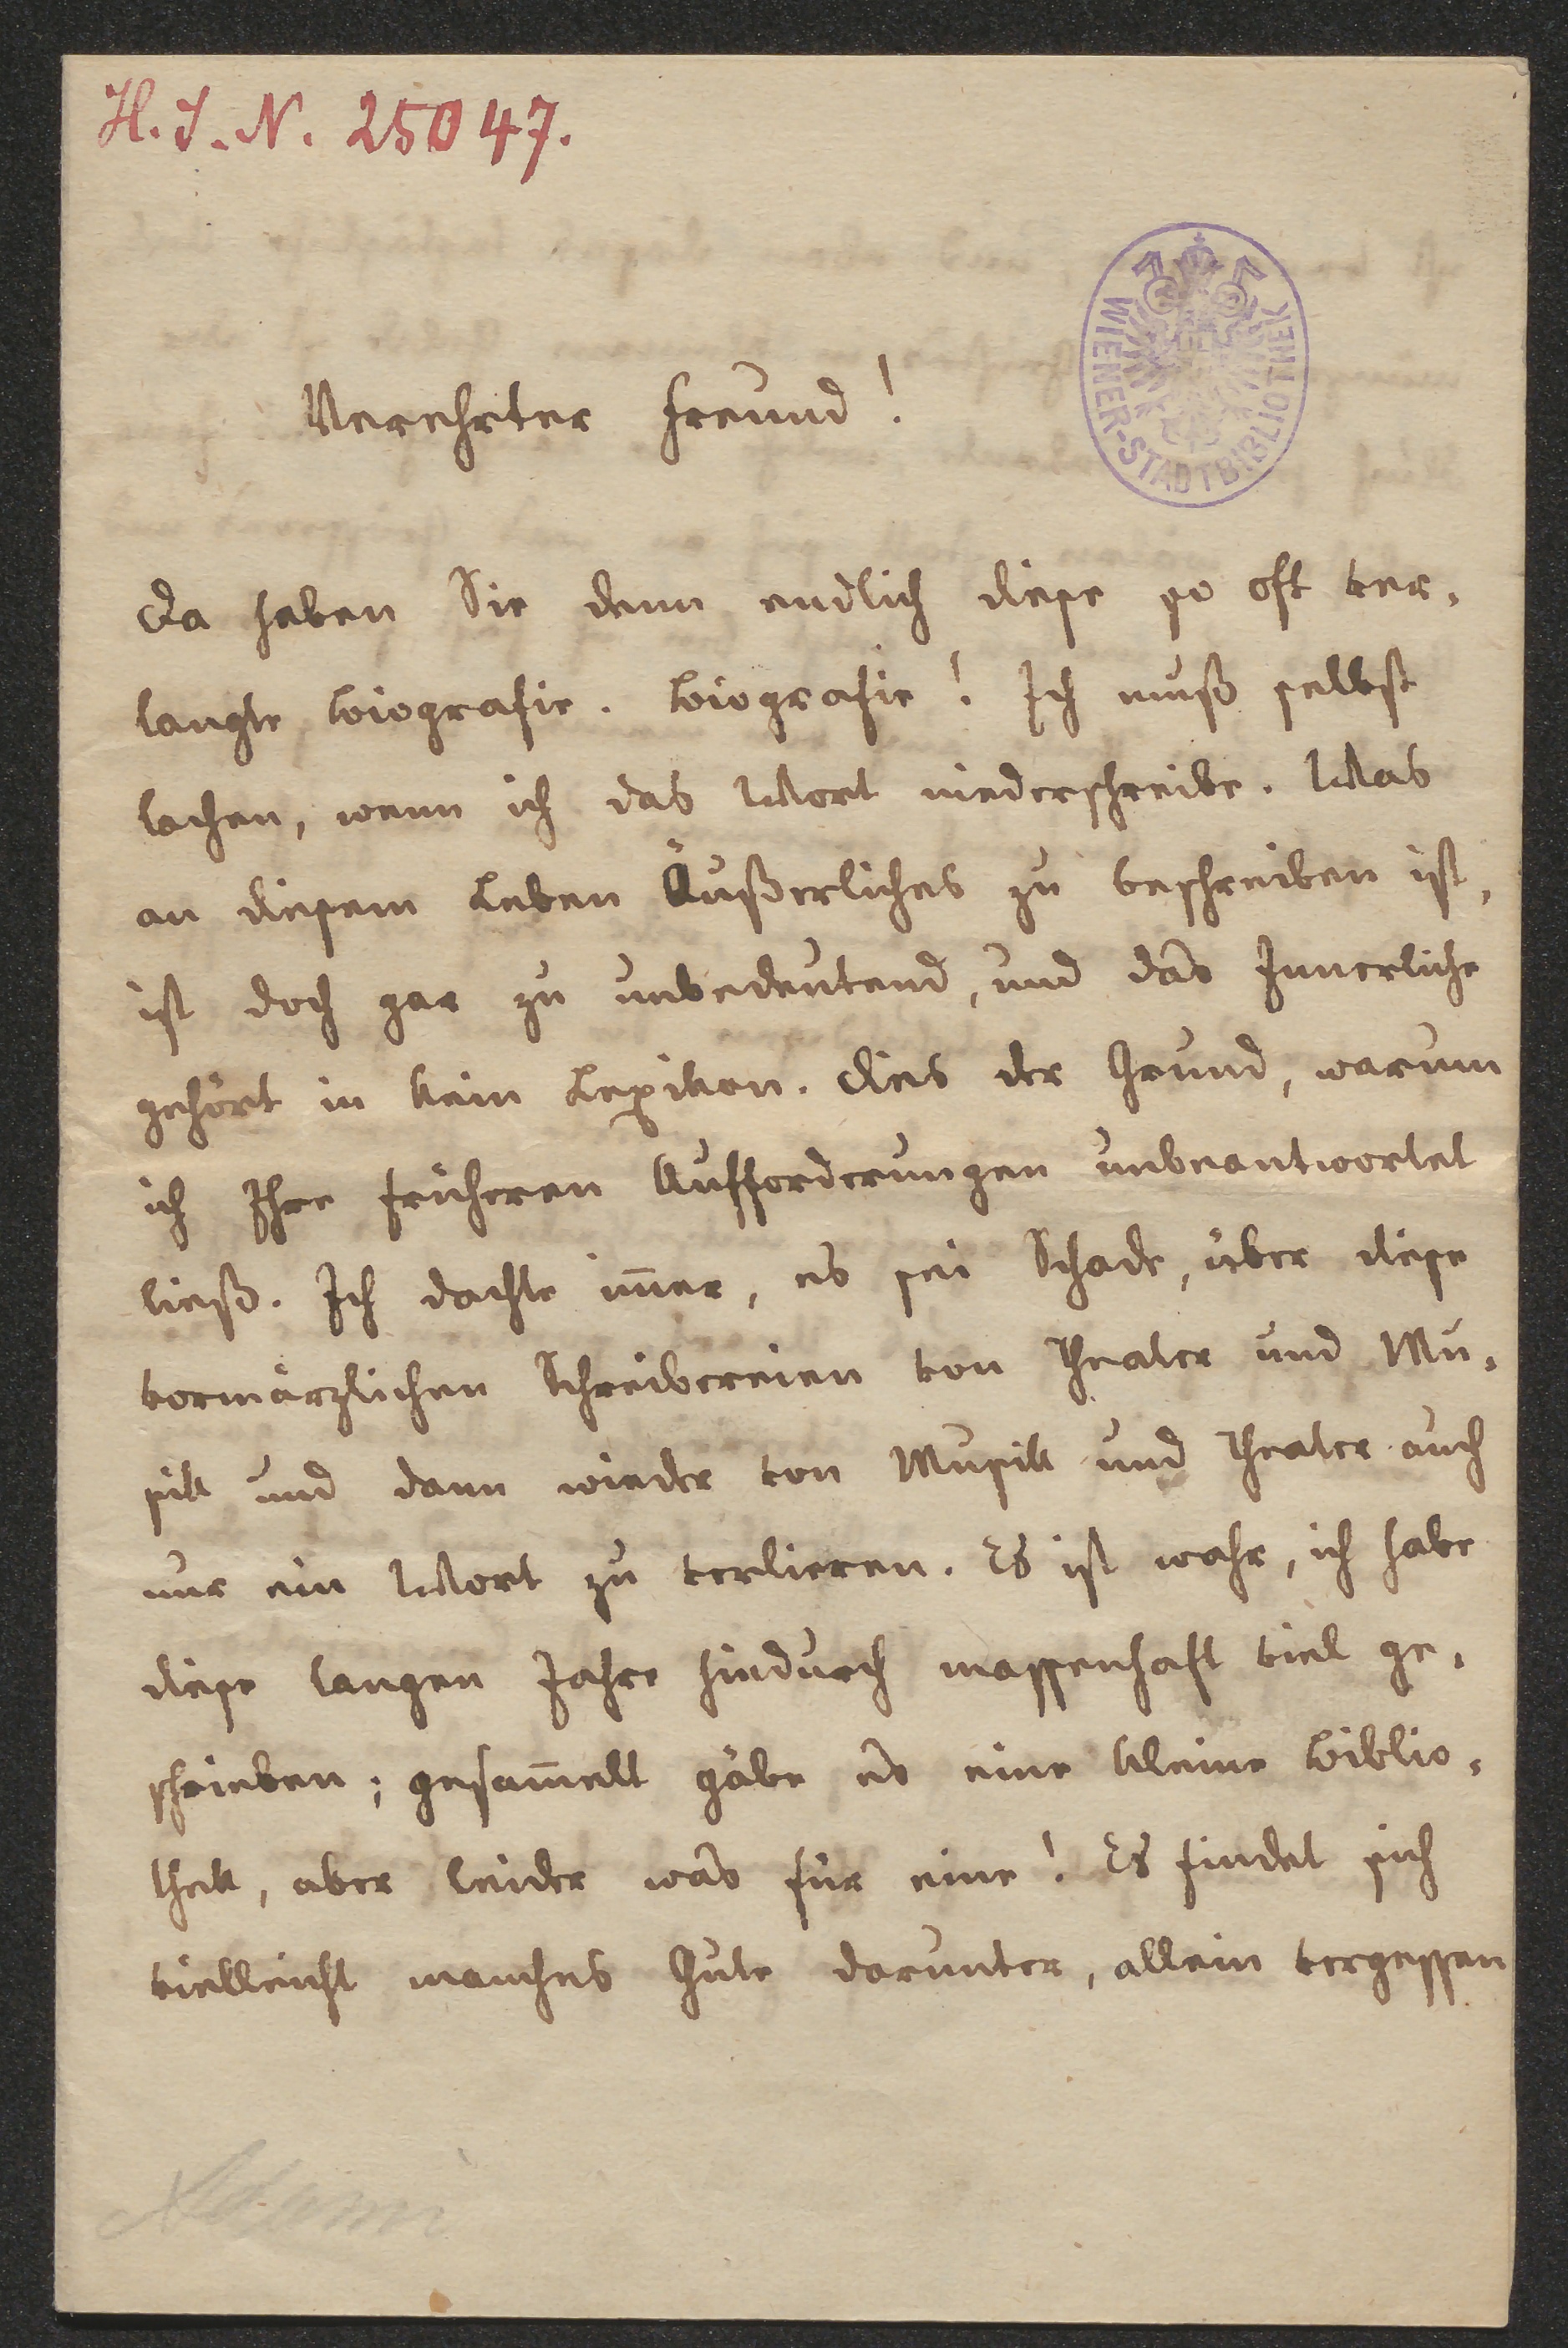 H. I. N. 25047.
WIENER-STADTBIBLIOTHEK
Verehrter Freund!
Da haben Sie denn endlich diese so oft ver-
langte Biografie. Biografie! Ich muß selbst
lachen, wenn ich das Wort niederschreibe. Was
an diesem Leben Äußerliches zu beschreiben ist,
ist doch gar zu unbedeutend, und das Innerliche
gehört in kein Lexikon. Dies der Grund, warum
ich Ihre früheren Aufforderungen unbeantwortet
ließ. Ich dachte im̅er, es sei Schade, über diese
vormärzlichen Schreibereien von Theater und Mu-
sik und dann wieder von Musik und Theater auch
nur ein Wort zu verlieren. Es ist wahr, ich habe
diese langen Jahre hindurch massenhaft viel ge-
schrieben; gesam̅elt gäbe es eine kleine Biblio-
thek, aber leider was für eine! Es findet sich
vielleicht manches Gute darunter, allein vergessen
Adami